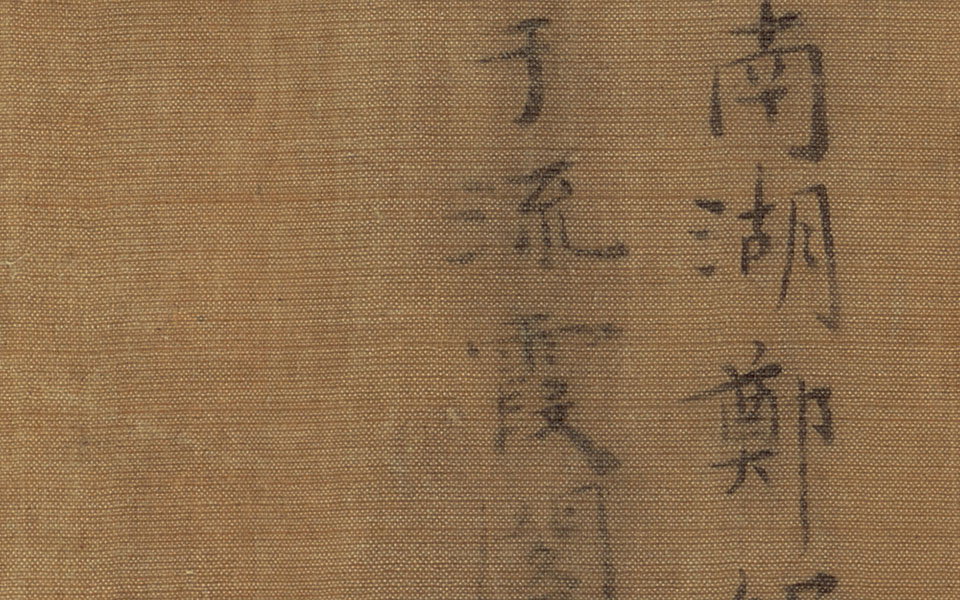 南湖鄭
于流霞閣